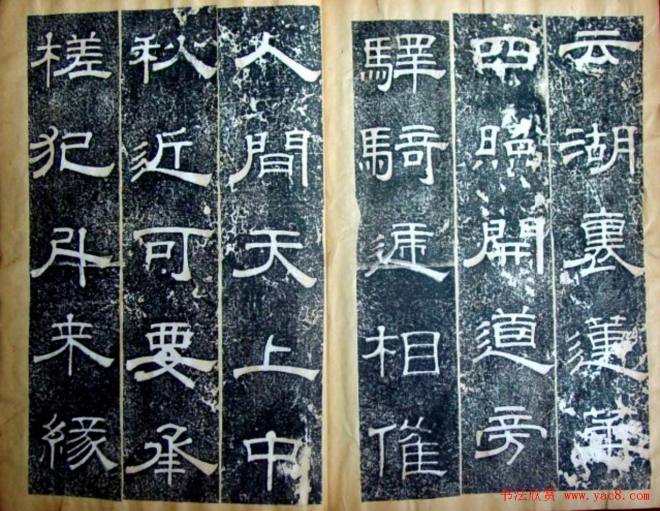 云湖裏蓮華
四暎開道旁
驛騎逓相催
人間天上中
秋近可要承
槎犯斗来緣
书法欣赏 www.yac8.com